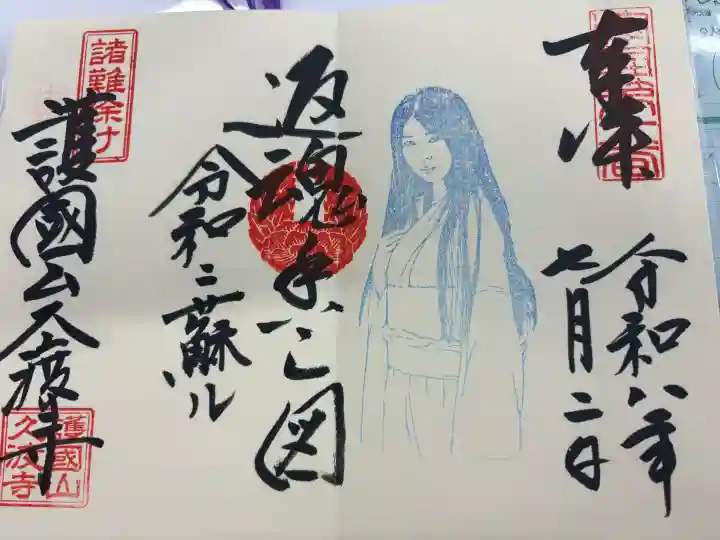 奉拝
令和八年
七月二日
返魂香之図
令和ニ蘇ル
諸難除
護國山久渡寺
護國山
久渡寺